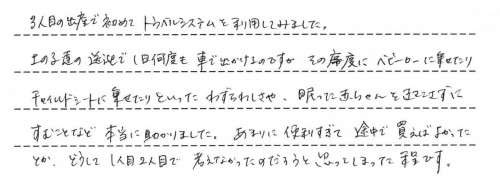 3人目の出産で初めてトラベルシステムを利用してみました。
上の子達の送迎で1日何度も車で出かけるのですが その席度にベビーローに乗せたり
チャイルドシートに乗せたりといったわずらわしさや、眠った赤ちゃんを起こさずに
すむことなど本当に助かりました。あまりに便利すぎて途中で買えばよかった
とか、どうして1人目2人目で考えなかったのだろうと思ってしまった程です。